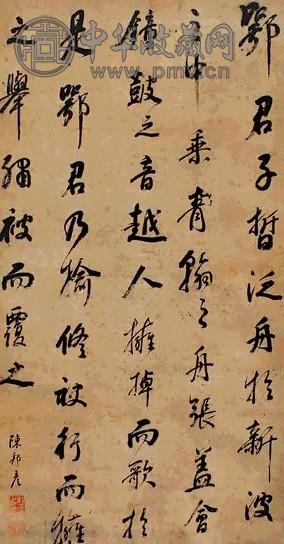 鄂君子晳泛舟於新波
之中乘青翰之舟張蓋會
鐘鼓之音越人擁棹而歌於
是鄂君乃揄修袂行而擁
之舉繡被而覆之
陳邦彦
中华收藏网